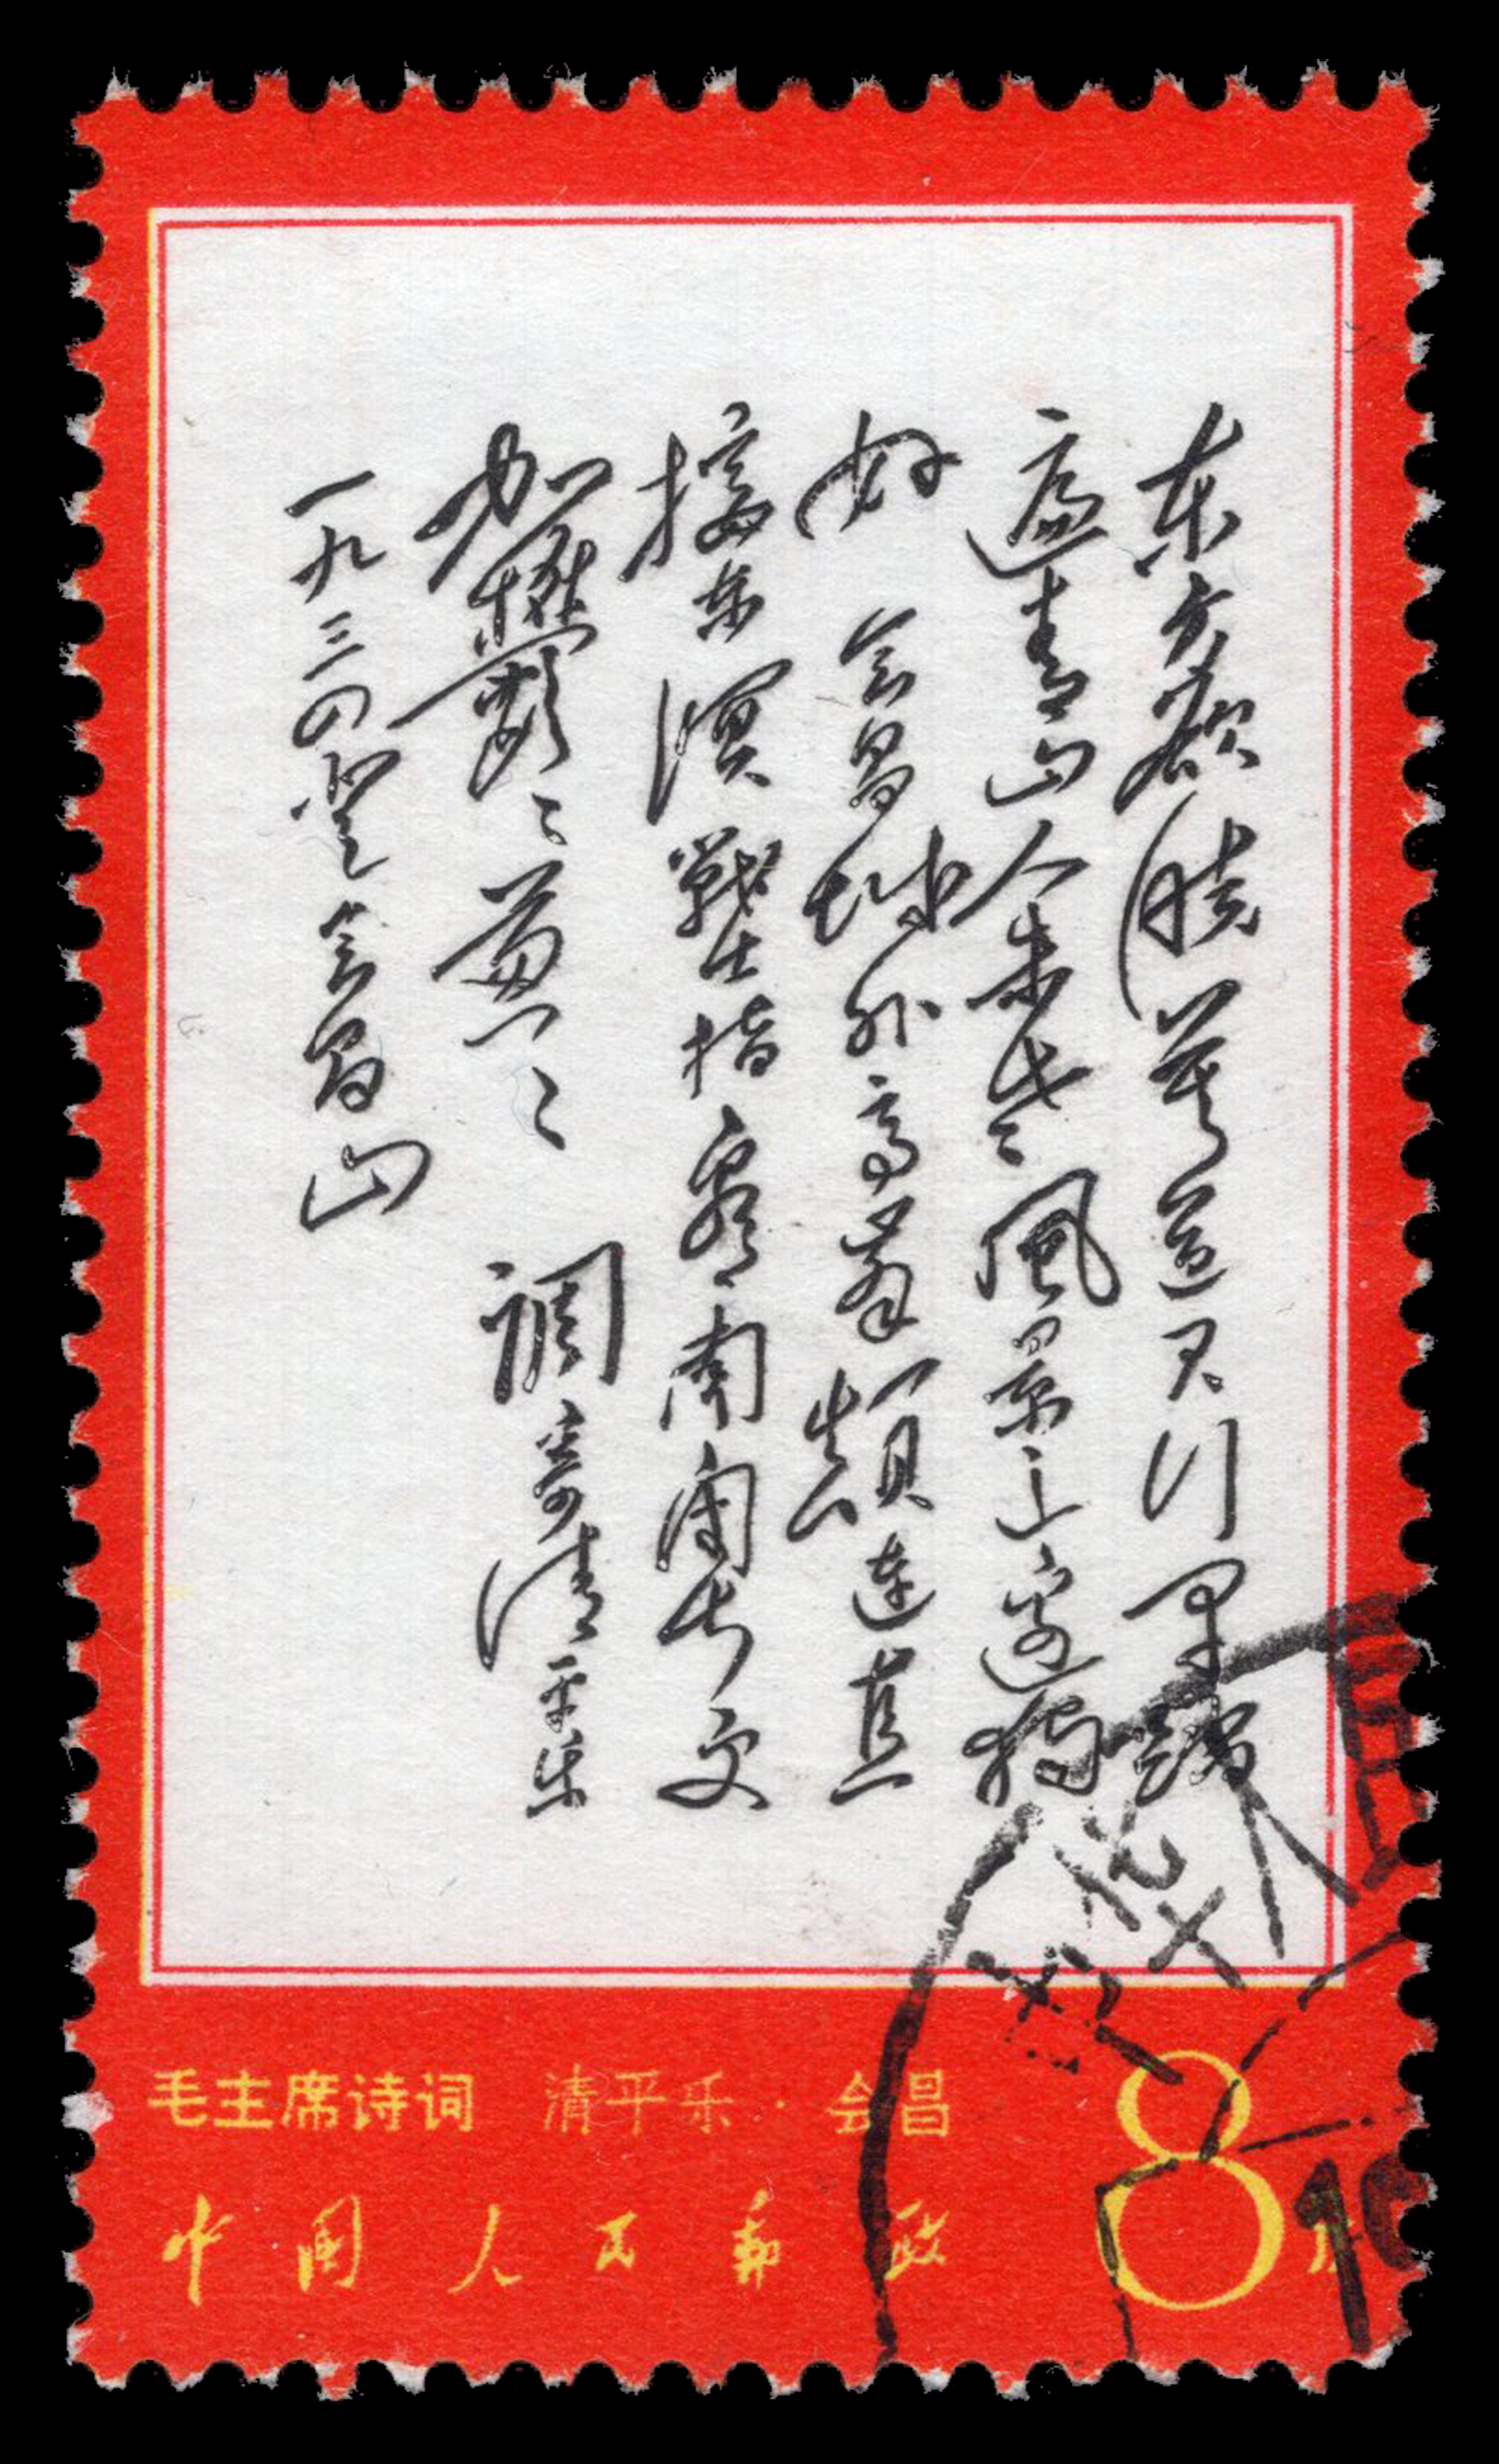 东方欲晓莫道君行早踏
遍青山人未老風景这边独
好 会昌城外高峯顛连直
接东溟戰士指看南粤更
加鬱々葱々 调寄清平乐
一九三四登会昌山
毛主席诗词 清平乐·会昌
中国人民邮政
8